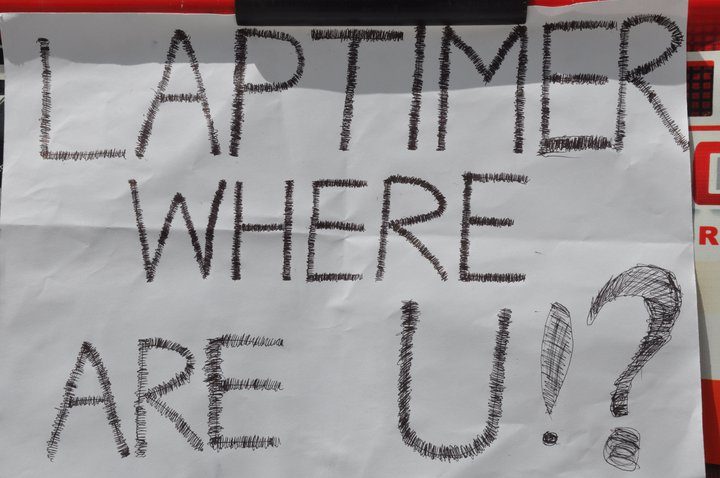 LAPTIMER
WHERE
ARE U!?
R